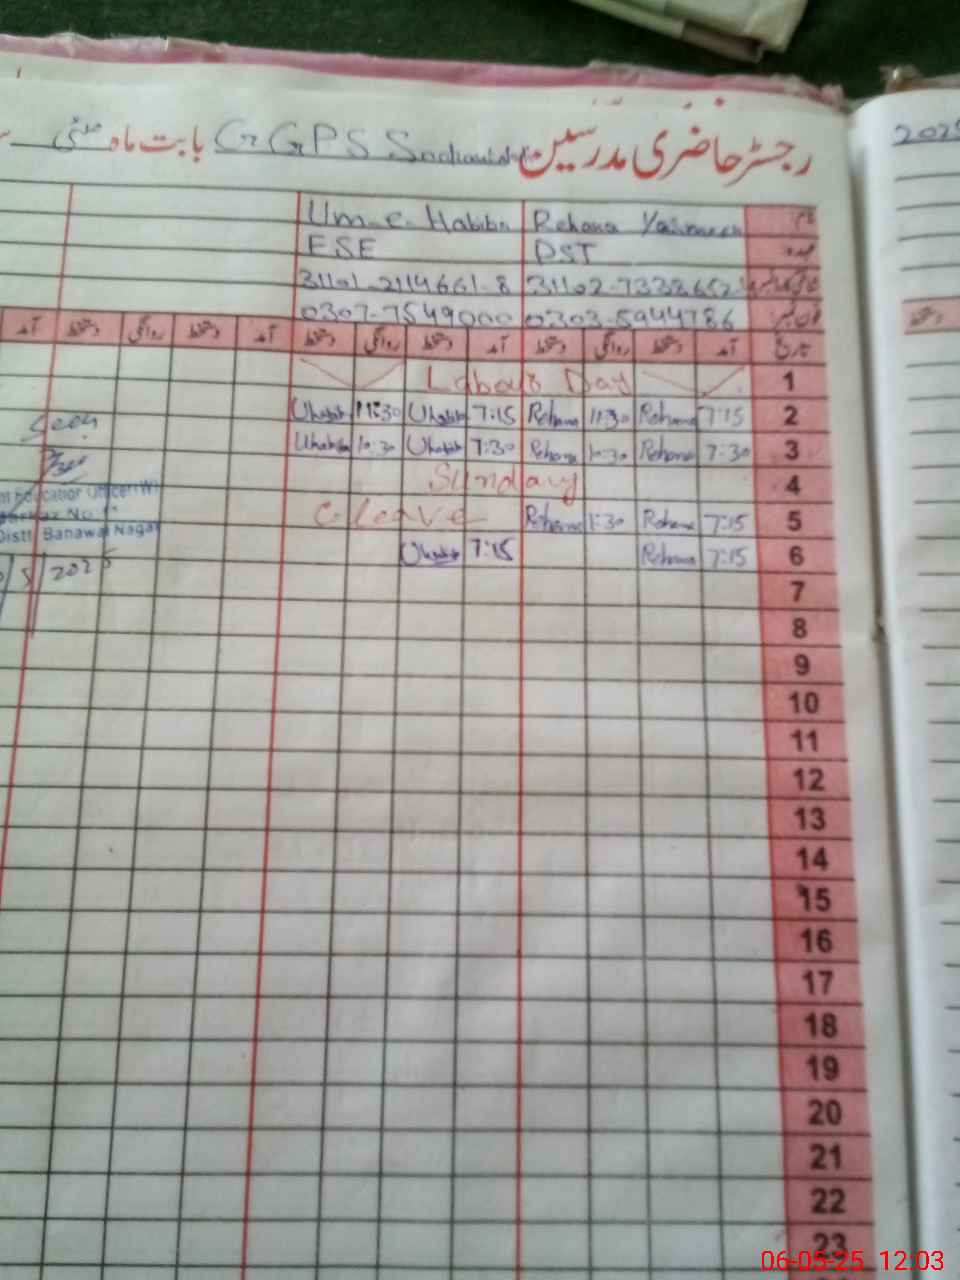 رجسٹر حاضری مدرسین GGPS بابت ماہ مئی
2025
نام Rehana Yasmeen Um-e-Habiba
عہدہ PST ESE
31101-2114661-8
فون نمبر 0303-5944786 0307-7549000
تاریخ آمد دستخط روانگی دستخط آمد دستخط روانگی دستخط آمد دستخط روانگی دستخط آمد
دستخط
1 Labour Day
2 7:15 Rehana 11:30 Rehana 7:15 Uhabib 11:30 Uhabib
3 7:30 Rehana 10:30 Rehana 7:30 Uhabib 10:30 Uhabiba
4 Sunday
5 7:15 Rehana 1:30 Rehana C.leave
6 7:15 Rehana 7:15 Uhabib
7
8
9
10
11
12
13
14
15
16
17
18
19
20
21
22
23
Seen
Education Officer (W)
Markaz No
Distt Banawal Nagar
5/2025
06-05-25 12:03